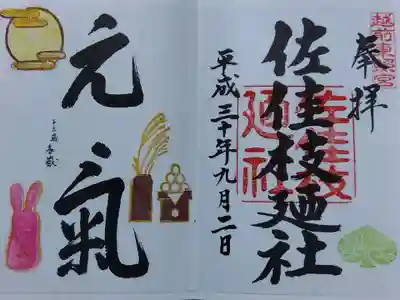 越前東照宮
奉拝
佐佳枝廼社
佐佳枝
廼社
平成三十年九月二日
元氣